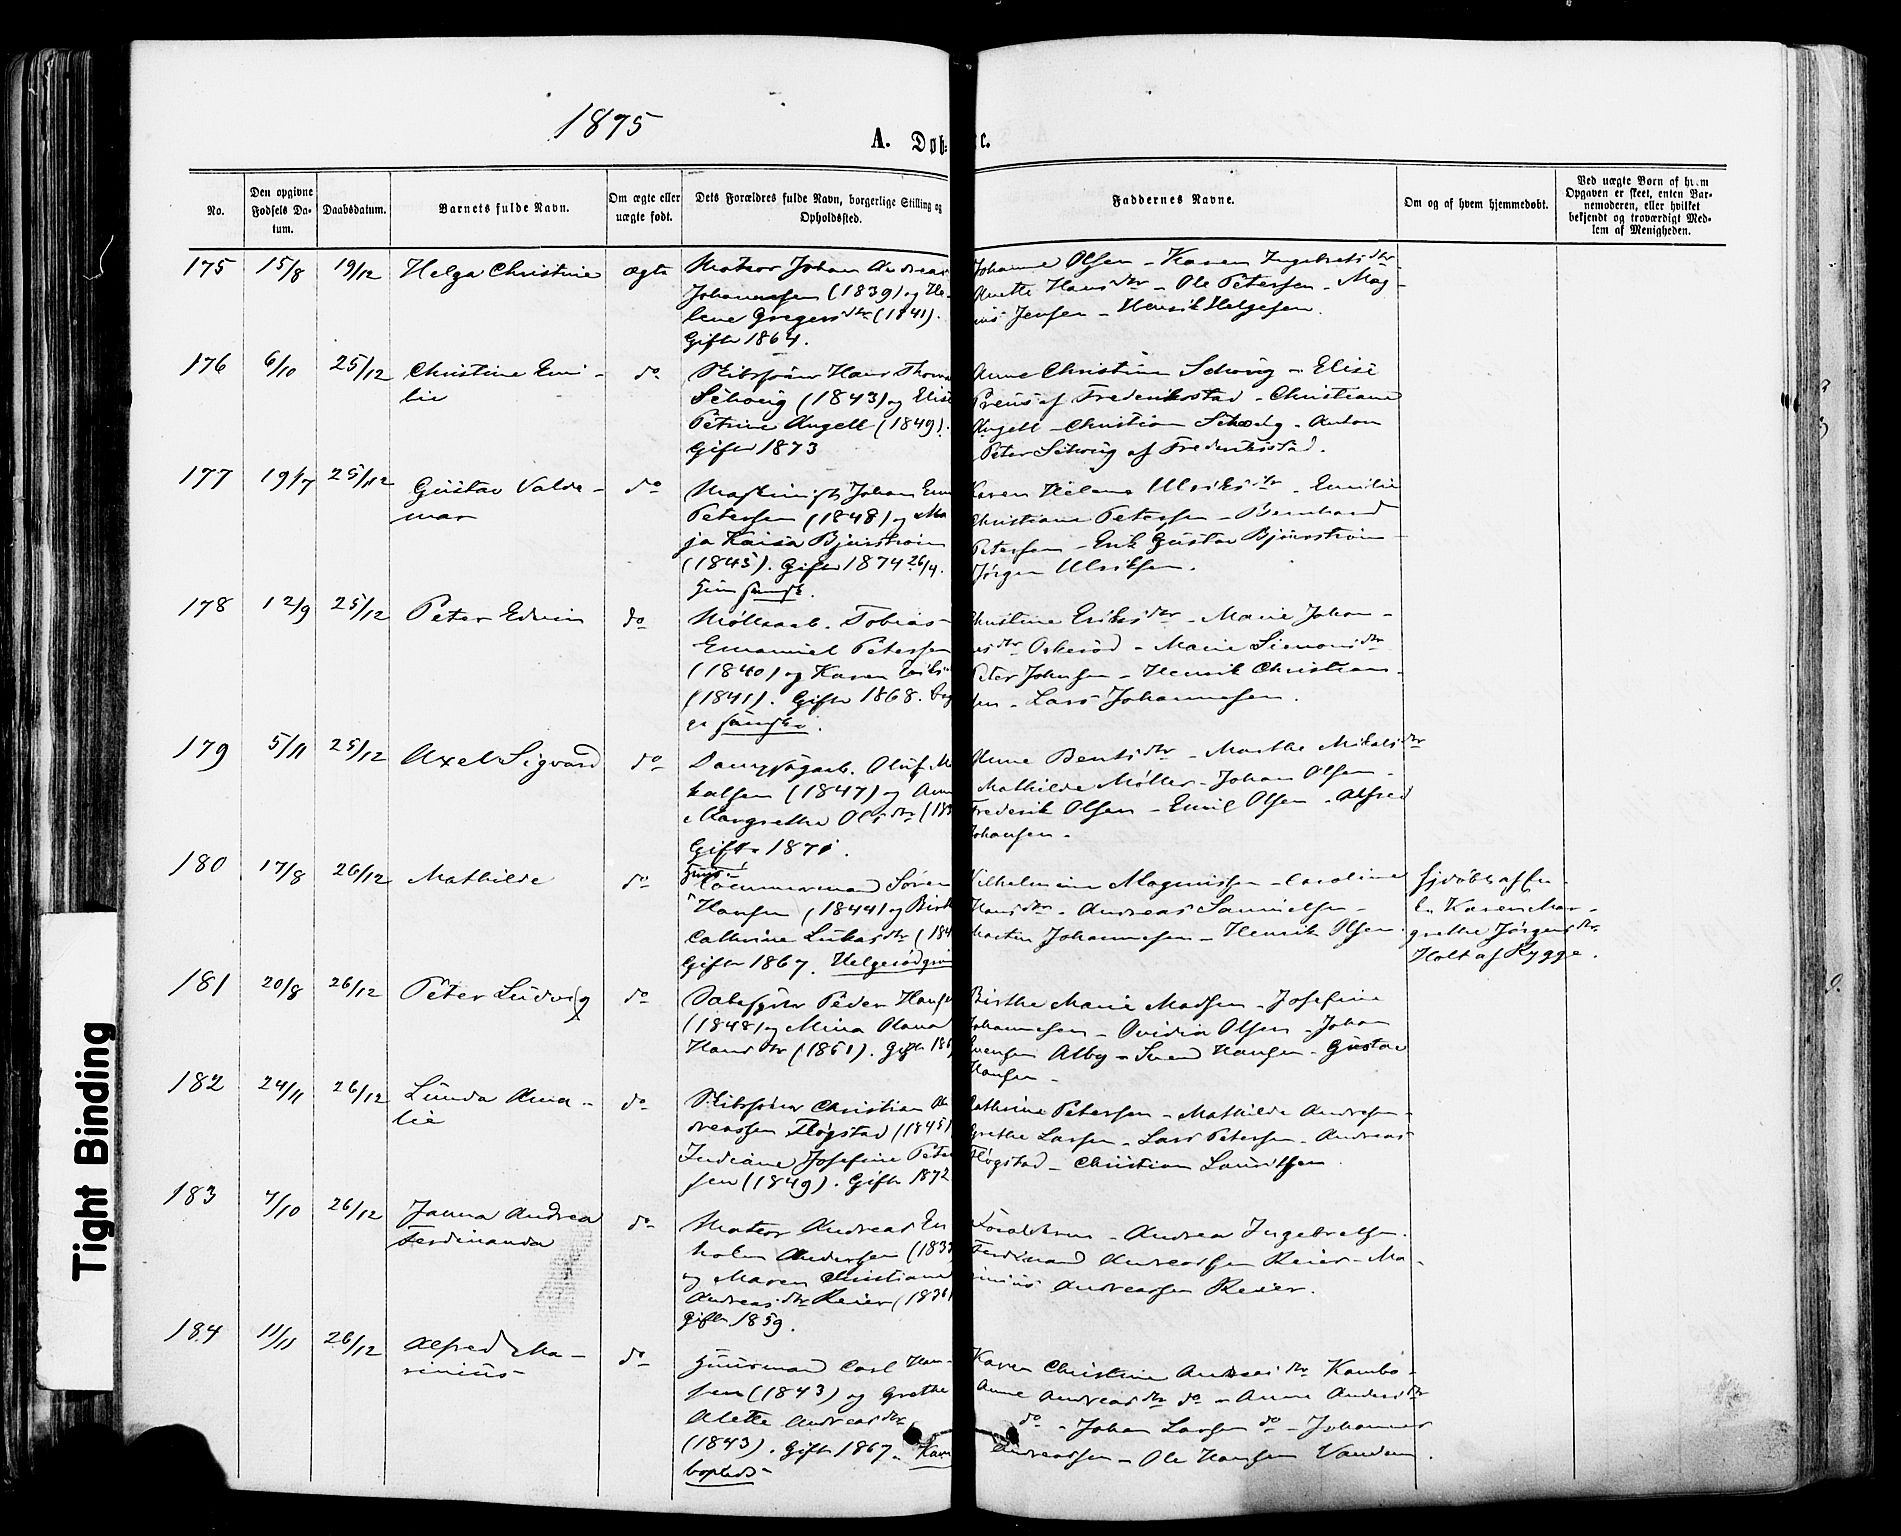 1875
A. Døb- e.
No.
Den opgivne Fødsels Da-tum.
Daabsdatum.
Barnets fulde Navn.
Om ægte eller uægte født.
Dets Forældres fulde Navn, borgerlige Stilling og Opholdssted.
Faddernes Navne.
Om og af hvem hjemmedøbt.
Ved uægte Børn af hvem Opgaven er skeet, enten Bar-nemoderen, eller hvilket bekjendt og troværdigt Med-lem af Menigheden.
175 15/8 19/12 Helga Christine ægte
Matros Johan Andreas
Johannessen (1839) og He-
lene Gregersdtr (1841).
Gifte 1864.
Johanne Olsen - Karen Ingebretsdtr -
Anette Hansdtr - Ole Petersen - Mag-
nus Jensen - Henrik Helgesen.
176 6/10 25/12 Christine Emi-
lie do
Skibsfører Hans Thoma
Schwig (1843) og Elise
Petrine Angell (1849).
Gifte 1873
Anne Christine Schwig - Elise
Preus af Frederiksstad - Christiane
Angell - Christian Schwig - Anton
Peter Schwig af Frederiksstad.
177 19/7 25/12 Gustav Valde-
mar do
Maskinist Johan Em
Petersen (1848) og Ma
ja Kaisa Bjurstrøm
(1845). Gifte 1874 26/4.
Hun svensk.
Karen Helene Ulriksdtr - Emilie
Christiane Petersen - Bernhard
Petersen - Erik Gustav Bjurstrøm -
Jørgen Ulriksen.
178 12/9 25/12 Peter Edvin do
Møllearb. Tobias
Emanuel Petersen
(1840) og Karen Eriks
(1841). Gifte 1868. Beg
ge svenske.
Christine Eriksdtr - Marie Johan-
nsdtr Oskerød - Marie Simonsdtr
Peter Johnsen - Henrik Christian-
sen - Lars Johannesen.
179 5/11 25/12 Axel Sigvard do
Dampsagarb. Oluf M
kalsen (1847) og Ann
Margrethe Olsdtr (18
Gifte 1871.
Anne Bentsdtr - Marthe Mikalsdtr
Mathilde Møller - Johan Olsen -
Frederik Olsen - Emil Olsen - Alfred
Johansen -
180 17/8 26/12 Mathilde do
Tømmermand Søren
Hansen (1844) og Birt
Cathrine Lukasdtr (184
Gifte 1867. Helgerødgrn
Vilhelmine Magnussen - Caroline
Hansdtr - Andreas Samuelsen -
Martin Johannesen - Henrik Olsen.
hjdøbt af En-
ke Karen Mar-
grethe Jørgensdtr
Holt af Rygge.
181 20/8 26/12 Peter Ludvig do
Peder Hansen
(1848) og Mina Olava
Hansdtr (1851). Gift 186
Birthe Marie Madsen - Josefine
Johannesen - Ovidia Olsen - Johan
Svensen Alby - Svend Hansen - Gustav
Hansen -
182 24/11 26/12 Lunda Ama-
lie do
Skibsfører Christian An
dreassen Fløgstad (1845)
Indiane Josefine Peter
sen (1849). Gifte 1872
Cathrine Petersen - Mathilde Andresen -
Grethe Larsen - Lars Petersen - Andreas
Fløgstad - Christian Lauritzen.
183 7/10 26/12 Janna Andrea
Ferdinanda do
Matros Andreas En
holm Andersen (183
og Maren Christiane
Andreasdtr Reier (1836)
Gifte 1859.
Forældrene - Andrea Ingebretsen.
Ferdinand Andreassen Reier - Ma-
rinius Andreassen Reier.
184 11/11 26/12 Alfred Ma-
rinius do
Huusmand Carl Han-
sen (1843) og Grethe
Alette Andreasdtr
(1843). Gifte 1867. Kam
boplads
Karen Christine Andreasdtr Kambo -
Anne Andreasdtr do - Anne Andersdtr
do - Johan Larsen do - Johannes
Andreassen - Ole Hansen Vanden.
Tight Binding